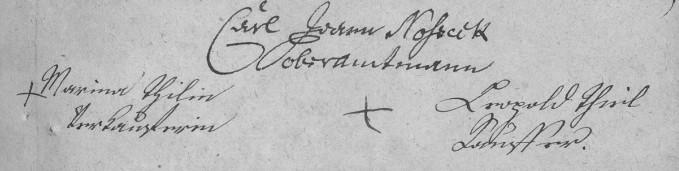 Carl Joann Nosseck
Oberamtmann
+ Marina Thilin
Verkäufferin
+
Leopold Thiel
Käuffer.